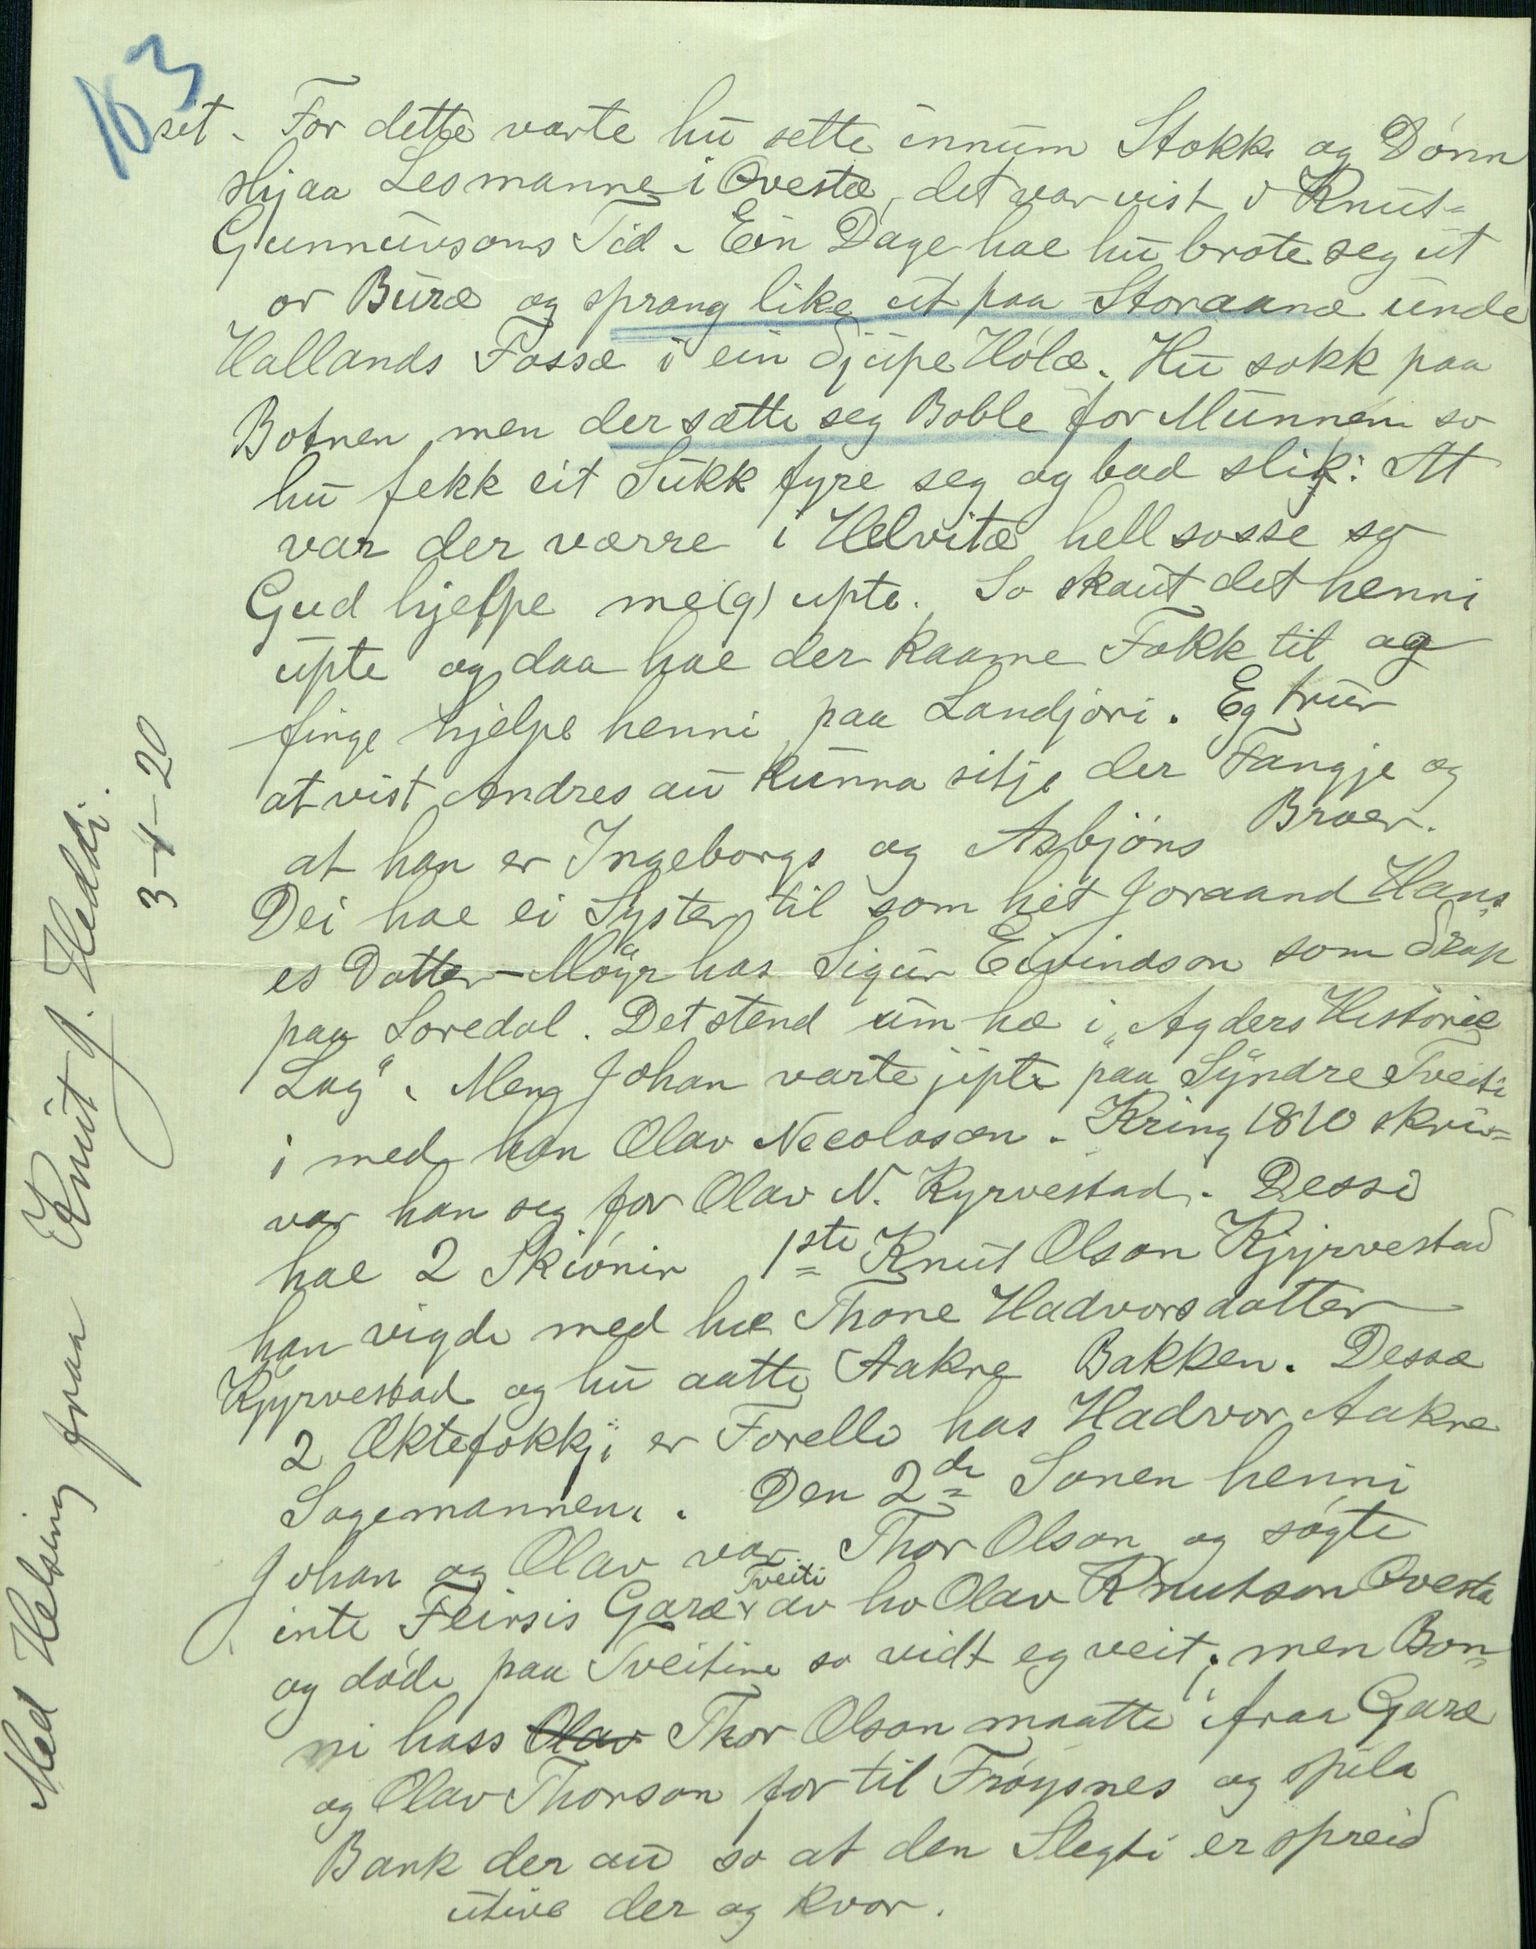 103
set. For dette varte hu sette innum Stokk og Dónn
Hjaa Lesmanne i Ovestæ, det var vist i Knut-
Gunnunsons Tid. Ein Dage hae hu brote seg ut
or Buræ og sprang like ut paa Storaanæ unde
Hallands Fossæ i ein djupe Hólæ. Hu sokk paa
Botnen men der sætte seg Boble for Munnen so
hu fekk eit Sukk fyre seg og bad slik: At
var der værre i Helvitæ hell sosse so
Gud hjelpe me(g) upte. So skaut det henni
upte og daa hae der kaame Fokk til og
finge hjelpe henni paa Landjori. Eg trur
at vist Andres au kunna sitje der Fangje og
at han er Ingeborgs og Asbjóns Broer.
Dei hae ei Syster til som het Joraand Hans
es Datter Móyr has Sigur Eivindson som drap
paa Loredal. Det stend um hæ i "Agders Historie
Lag". Meng Johan varte jipte paa Syndre Tveiti
i med han Olav Necolason. Kring 1810 skriv-
var han seg for Olav N. Kyrvestad. Dessi
hae 2 Skiónir 1ste Knut Olson Kjyrvestad
han vigde med hæ Thone Hadvorsdatter
Kjyrvestad og hu aatte Aakre Bakken. Dessæ
2 Ektefokkji er Forelli has Hadvor Aakre
Sogemannen. Den 2de Sonen henni
Johan og Olav var Thor Olson og sógte
inte Fleirsis Garæ Tveiti av ho Olav Knutson Ovesta
og dóde paa Tveitine so vidt eg veit; men Bon-
ni hass Olav Thor Olson maatte ifraa Garæ
og Olav Thorson for til Fróysnes og spila
Bank der au so at den Slegti er spreid
utive der og kvor.
Med Helsing fraa Knut J. Heddi.
3-4-20